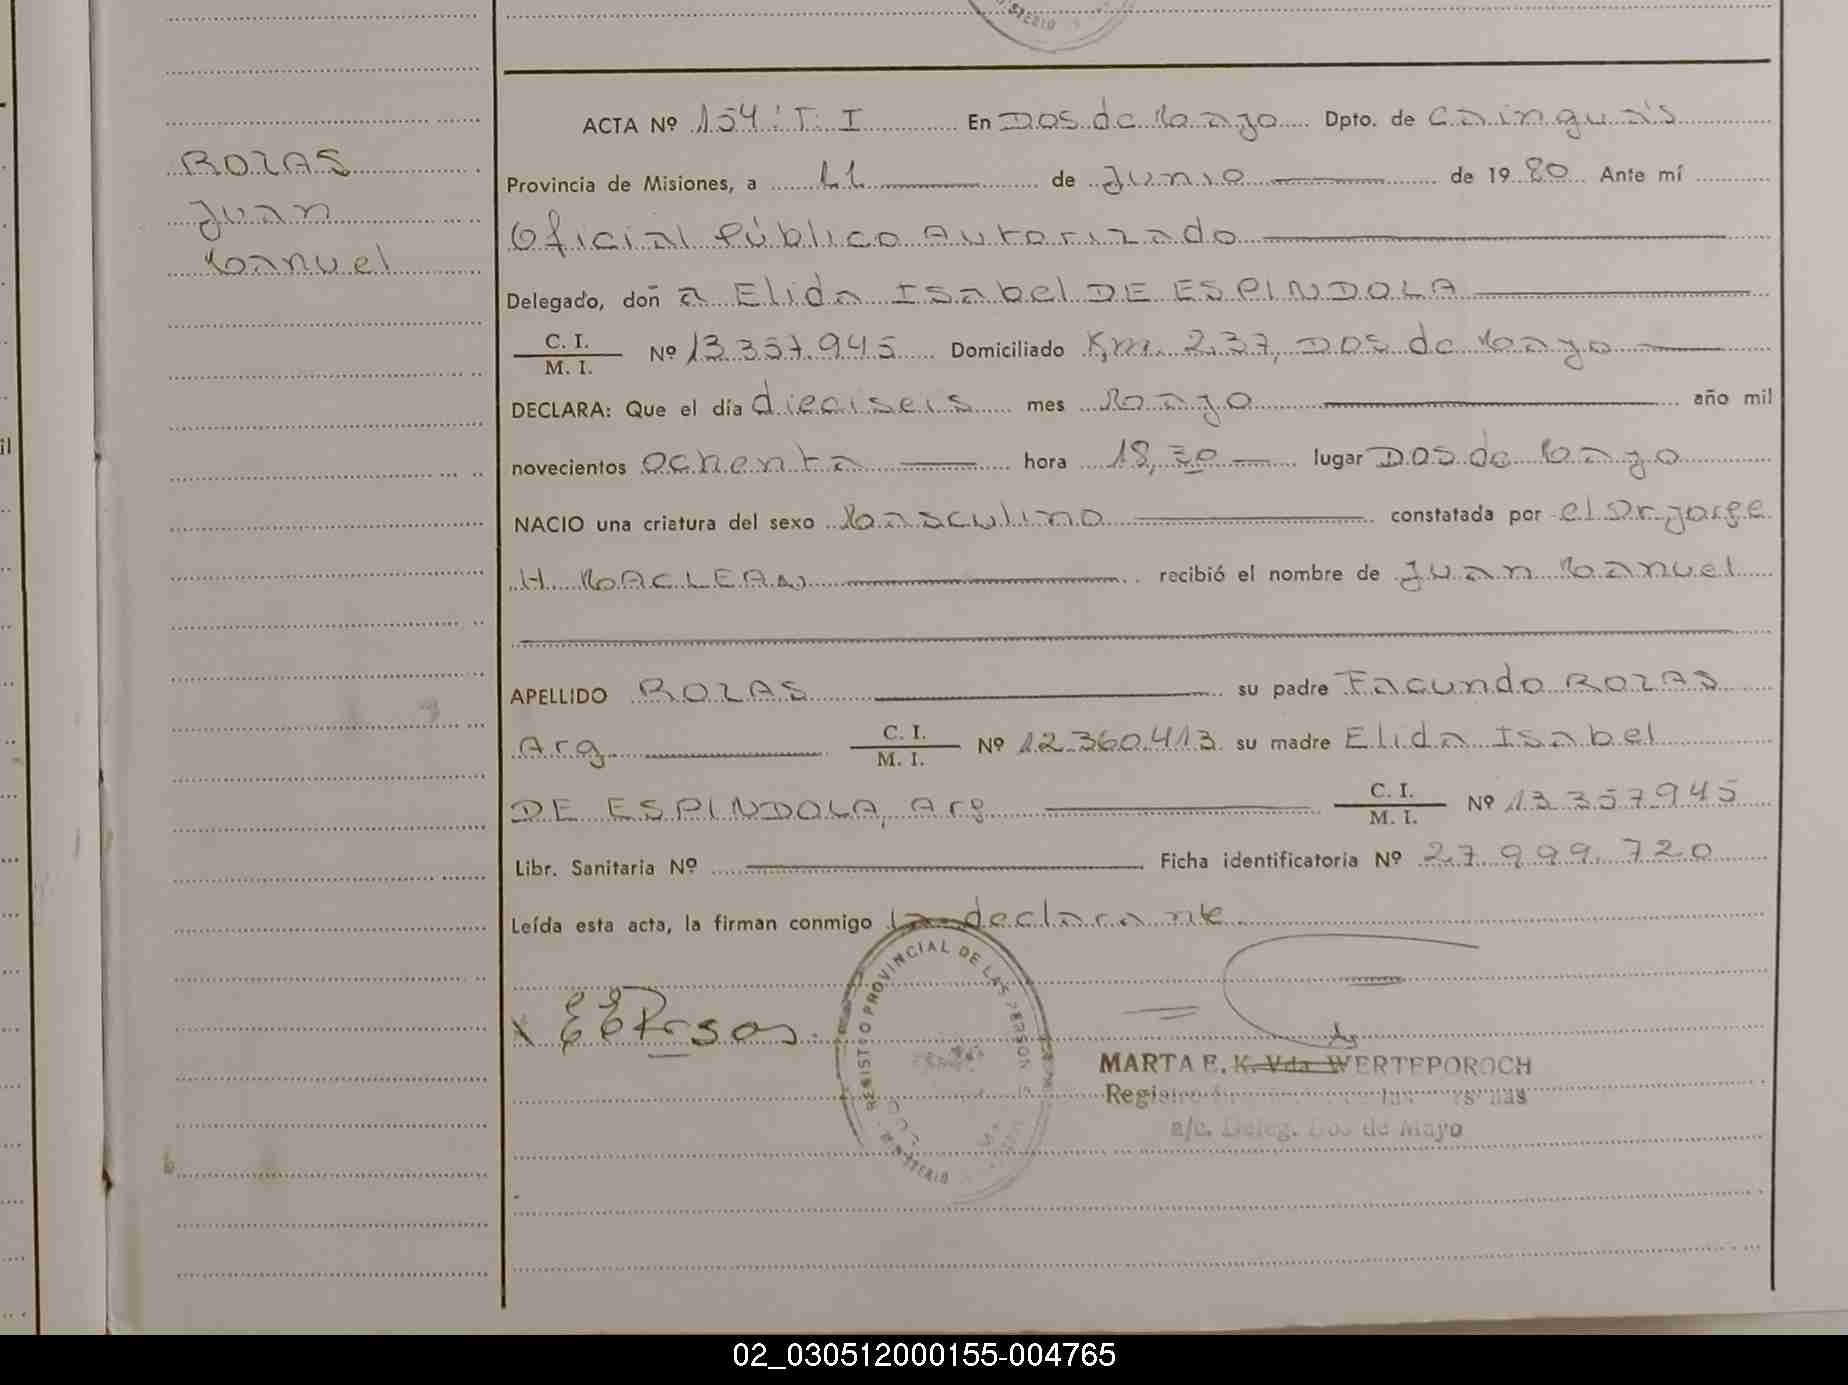 STERIO
ACTA Nº 154: T: I En Dos de Mayo Dpto. de Cainguás
ROZAS
Provincia de Misiones, a 11 de Junio de 1980 Ante mí
Juan
Oficial Público Autorizado
Manuel
Delegado, doñ a Elida Isabel DE ESPINDOLA
C. I.
M. I. Nº 13.357.945 Domiciliado Km. 237, Dos de Mayo
DECLARA: Que el día dieciseis mes Mayo año mil
novecientos ochenta hora 18,30 lugar Dos de Mayo
NACIO una criatura del sexo Masculino constatada por el Dr. Jorge
H. MACLEAN recibió el nombre de Juan Manuel
APELLIDO ROZAS su padre Facundo ROZAS
Arg. C. I.
M. I. Nº 12.360.413 su madre Elida Isabel
DE ESPINDOLA, Arg. C. I.
M. I. Nº 13.357.945
Libr. Sanitaria Nº Ficha identificatoria Nº 27.999.720
Leída esta acta, la firman conmigo la declarante
REGISTRO PROVINCIAL DE LAS PERSONAS
MINISTERIO
MARTA E. K. Vda WERTEPOROCH
a/c. Deleg. Dos de Mayo
02_030512000155-004765